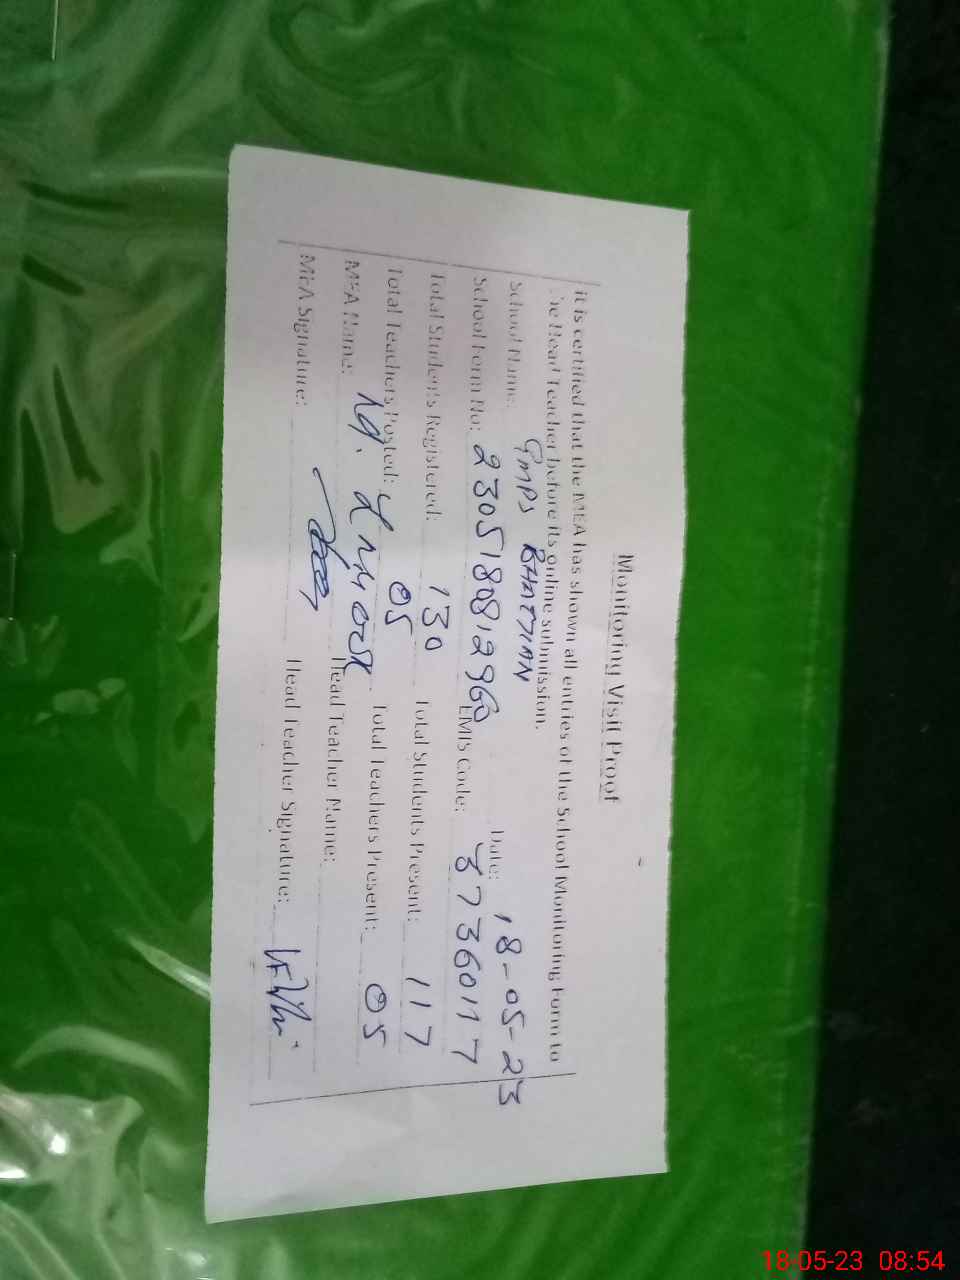 Monitoring Visit Proof
it is certified that the MEA has shown all entries of the School Monitoring Form to
the Head Teacher before its online submission.
School Name: GMPS BHATTIAN Date: 18-05-23
School Form No: 2305180812960 EMIS Code: 37360117
Total Students Registered: 130 Total Students Present: 117
Total Teachers Posted: 05 Total Teachers Present: 05
MEA Name: Head Teacher Name:
MEA Signature: Head Teacher Signature:
18-05-23 08:54